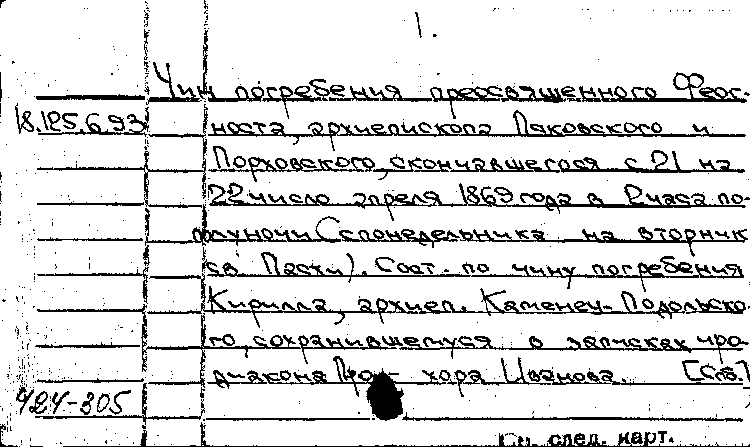 1.
Чин погребения преосвященного Феог-
18.125.6.93
носта, архиепископа Псковского и
Порховского, скончавшегося с 21 на
22 число апреля 1869 года в 2 часа по-
полуночи (с понедельника на вторник
св. Пасхи). Сост. по чину погребения
Кирилла, архиеп. Каменец-Подольско
го, сохранившемуся в записках про-
диакона Про- хора Иванова. [Спб.]
424-305
См. след. карт.